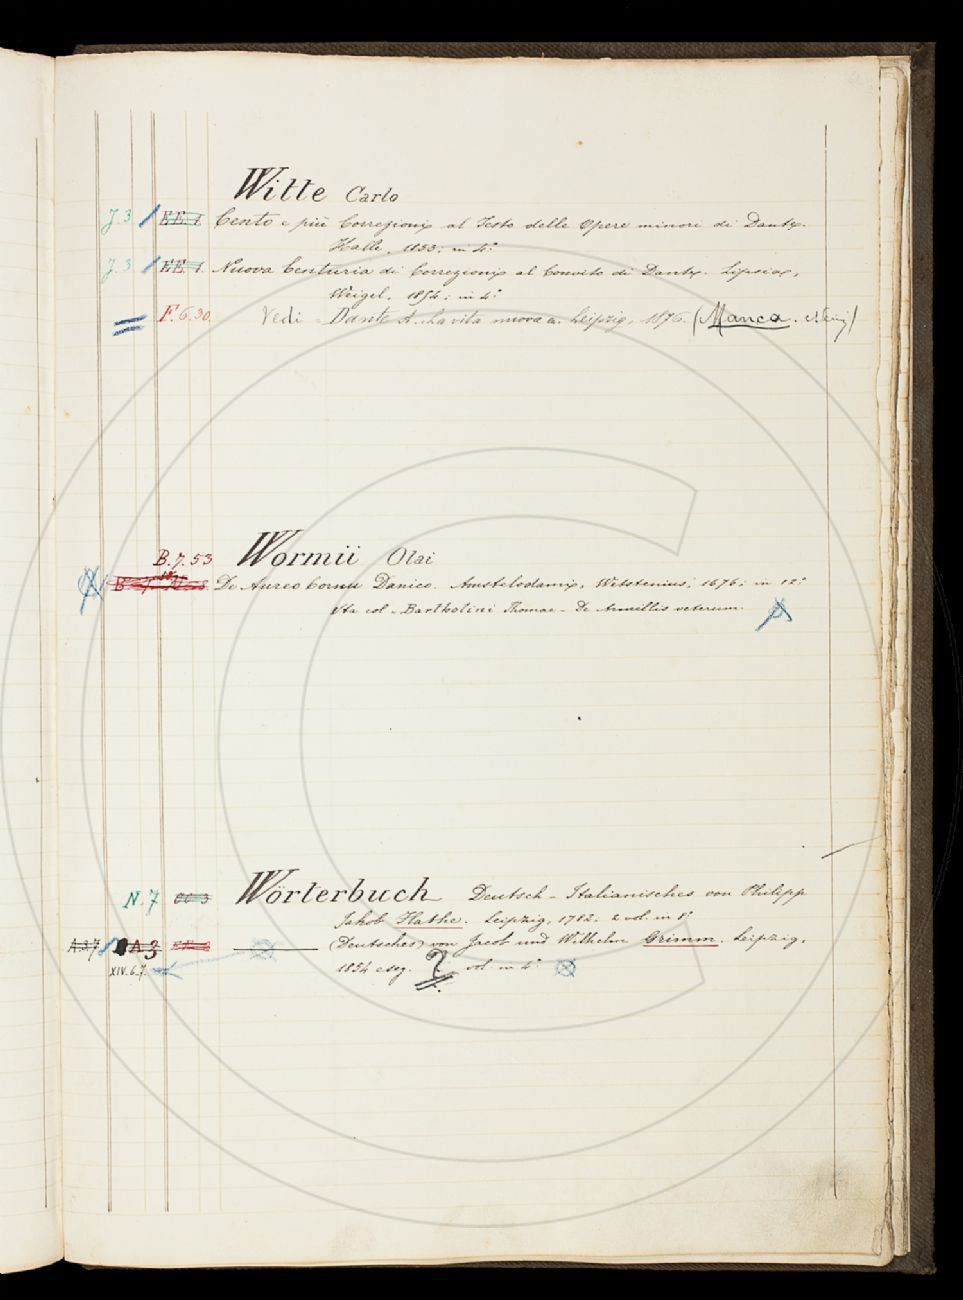 Witte Carlo
J. 3 EE. 1 Cento e più Correzioni al Testo delle Opere minori di Dante.
Halle, 1853; in 4º
J. 3 EE. 1 Nuova Centuria di Correzioni al Convito di Dante. Lipsia,
Weigel, 1854; in 4º
F. 6. 30. Vedi - Dante A. La vita nuova Leipzig, 1876. (Manca.
B. 7. 53 Wormii Olai
De Aureo Cornu Danico. Amstelodami, Wetstenius, 1676; in 12º
Sta col - Bartholini Thomae - De Armillis veterum.
N. 7 CC 3 Wörterbuch Deutsch - Italianisches von Philipp
Jakob Flathe. Leipzig, 1782. 2 vol. in 8º
A. 3. 7 A 3 (Deutsches) von Jacob und Wilhelm Grimm. Leipzig,
XIV. 6. 7. 1854 e seg. ? vol. in 4º